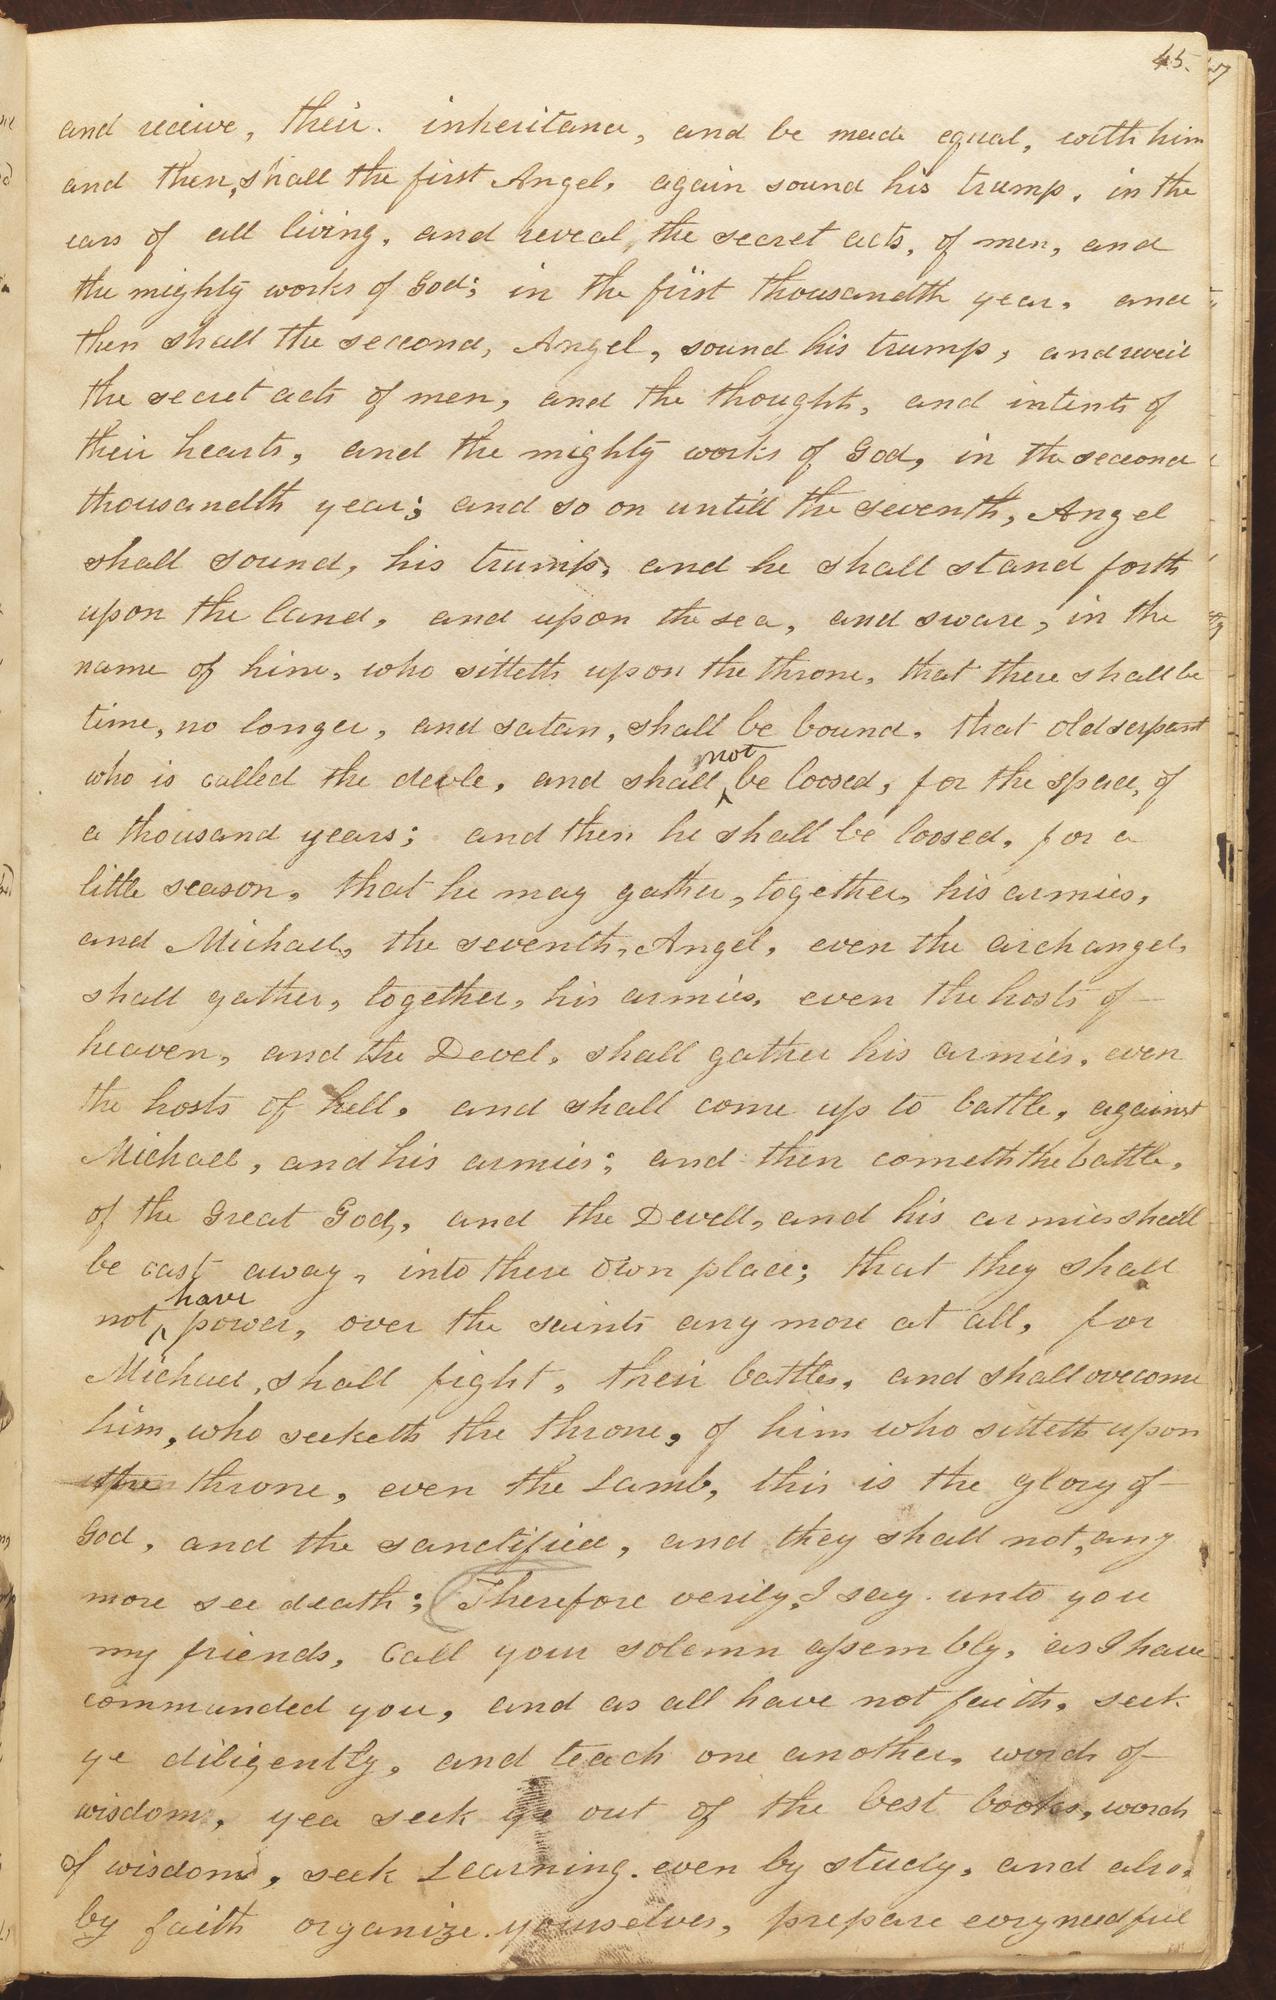 45.
and receive, their. inheritance, and be made equal, with him
and then, shall the first Angel, again sound his trump, in the
ears of all living, and reveal, the secret acts, of men, and
the mighty works of God; in the first thousandth year, and
then shall the second, Angel, sound his trump, and reveil
the secret acts of men, and the thoughts, and intents of
their hearts, and the mighty works of God, in the second
thousandth year; and so on untill the seventh, Angel
shall sound, his trump, and he shall stand forth
upon the land, and upon the sea, and sware, in the
name of him, who sitteth upon the throne, that there shall be
time, no longer, and satan, shall be bound, that old serpant
not
who is called the devle, and shall ^ be loosed, for the space, of
a thousand years; and then he shall be loosed, for a
little season, that he may gather, together, his armies,
and Michael, the seventh, Angel, even the archangel,
shall gather, together, his armies, even the hosts of
heaven, and the Devel, shall gather his armies, even
the hosts of hell, and shall come up to battle, against
Michael, and his armies; and then cometh the battle,
of the Great God, and the Devell, and his armies shall
be cast away, into there own place; that they shall
have
not ^ power, over the saints any more at all, for
Michael, shall fight, their battles, and shall overcome
him, who seeketh the throne, of him who sitteth upon
the throne, even the Lamb, this is the glory of
God, and the sanctified, and they shall not, any
more see death; (Therefore verily, I say unto you
my friends, call your solemn assembly, as I have
commanded you, and as all have not faith, seek
ye diligently, and teach one another, words of
wisdom, yea seek ye out of the best books, words
of wisdom, seek Learning. even by study, and also,
by faith organize yourselves, prepare evry needful